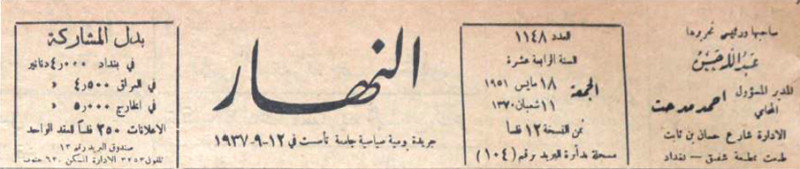 صاحبها ورئيس تحريرها
عبدالله حسن
المدير المسؤول
المحامي احمد مدحت
الادارة شارع حسان بن ثابت
طبعت بمطبعة شفيق — بغداد
العدد ١١٤٨
السنة الرابعة عشرة
الجمعة
١٨ مايس ١٩٥١
١١ شعبان ١٣٧٠
ثمن النسخة ١٢ فلساً
مسجلة بدائرة البريد برقم (١٠٤)
النهار
جريدة يومية سياسية جامعة تأسست في ١٢-٩-١٩٣٧
بدل المشاركة
في بغداد ٤٫٠٠٠ دنانير
في العراق ٤٫٥٠٠ »
في الخارج ٥٫٠٠٠ »
الاعلانات ٢٥٠ فلساً للعقد الواحد
صندوق البريد رقم ١٣
تلفون ٣٢٥٣ الادارة السكن ٦٣٠ جنوب